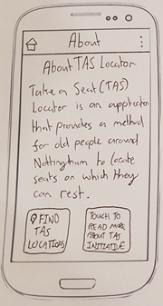 About
About TAS Locator
Take a Seat (TAS)
Locator is an application
that provides a method
for old people around
Nottingham to locate
seats on which they
can rest.
FIND
TAS
LOCATIONS
TOUCH TO
READ MORE
ABOUT TAS
INITIATIVE